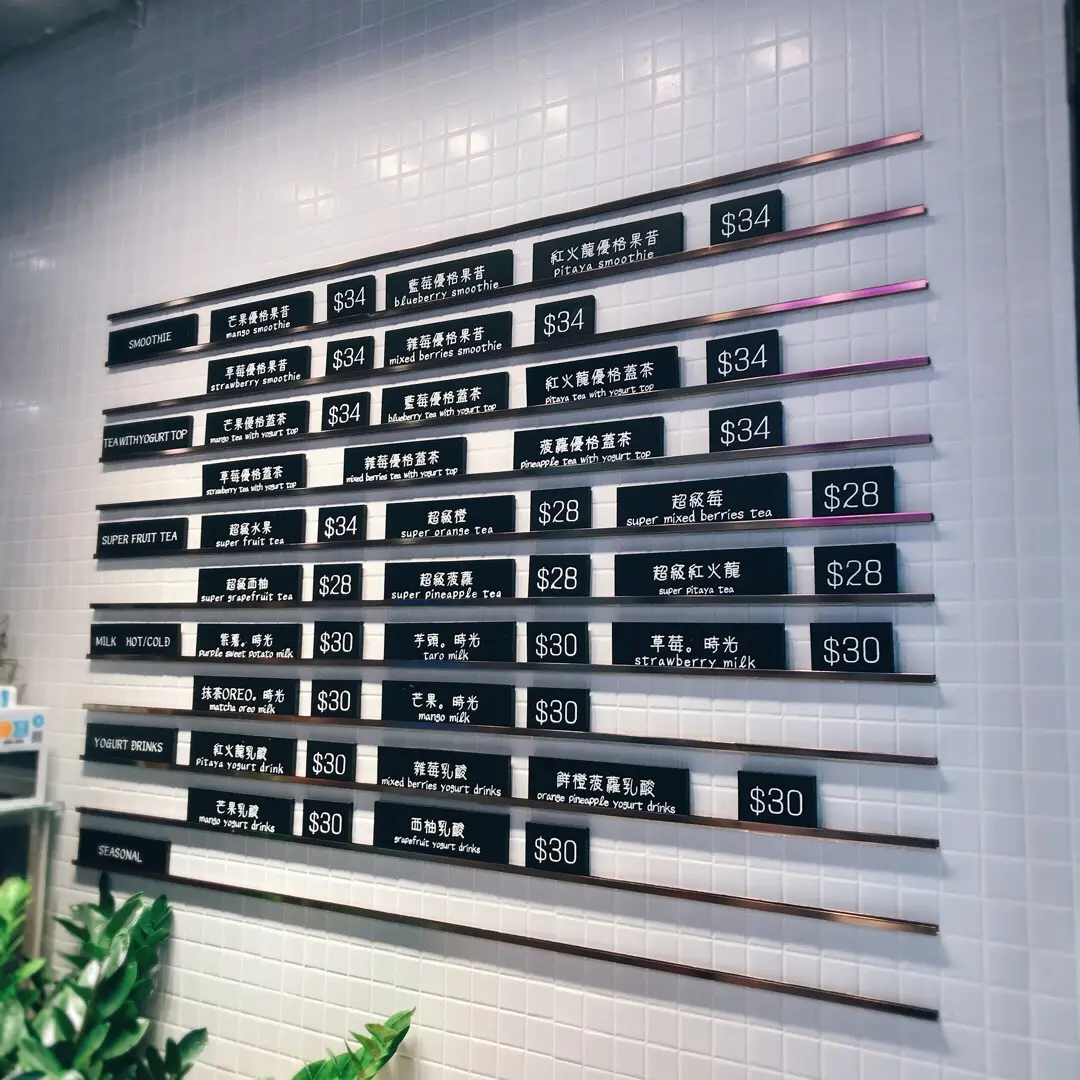 SMOOTHIE
芒果優格果昔
mango smoothie
$34
藍莓優格果昔
blueberry smoothie
紅火龍優格果昔
pitaya smoothie
$34
草莓優格果昔
strawberry smoothie
$34
雜莓優格果昔
mixed berries smoothie
$34
TEA WITH YOGURT TOP
芒果優格蓋茶
mango tea with yogurt top
$34
藍莓優格蓋茶
blueberry tea with yogurt top
紅火龍優格蓋茶
pitaya tea with yogurt top
$34
草莓優格蓋茶
strawberry tea with yogurt top
雜莓優格蓋茶
mixed berries tea with yogurt top
菠蘿優格蓋茶
pineapple tea with yogurt top
$34
SUPER FRUIT TEA
超級水果
super fruit tea
$34
超級橙
super orange tea
$28
超級莓
super mixed berries tea
$28
超級西柚
super grapefruit tea
$28
超級菠蘿
super pineapple tea
$28
超級紅火龍
super pitaya tea
$28
MILK HOT/COLD
紫薯。時光
purple sweet potato milk
$30
芋頭。時光
taro milk
$30
草莓。時光
strawberry milk
$30
抹茶OREO。時光
matcha oreo milk
$30
芒果。時光
mango milk
$30
YOGURT DRINKS
紅火龍乳酸
pitaya yogurt drink
$30
雜莓乳酸
mixed berries yogurt drinks
鮮橙菠蘿乳酸
orange pineapple yogurt drinks
$30
芒果乳酸
mango yogurt drinks
$30
西柚乳酸
grapefruit yogurt drinks
$30
SEASONAL